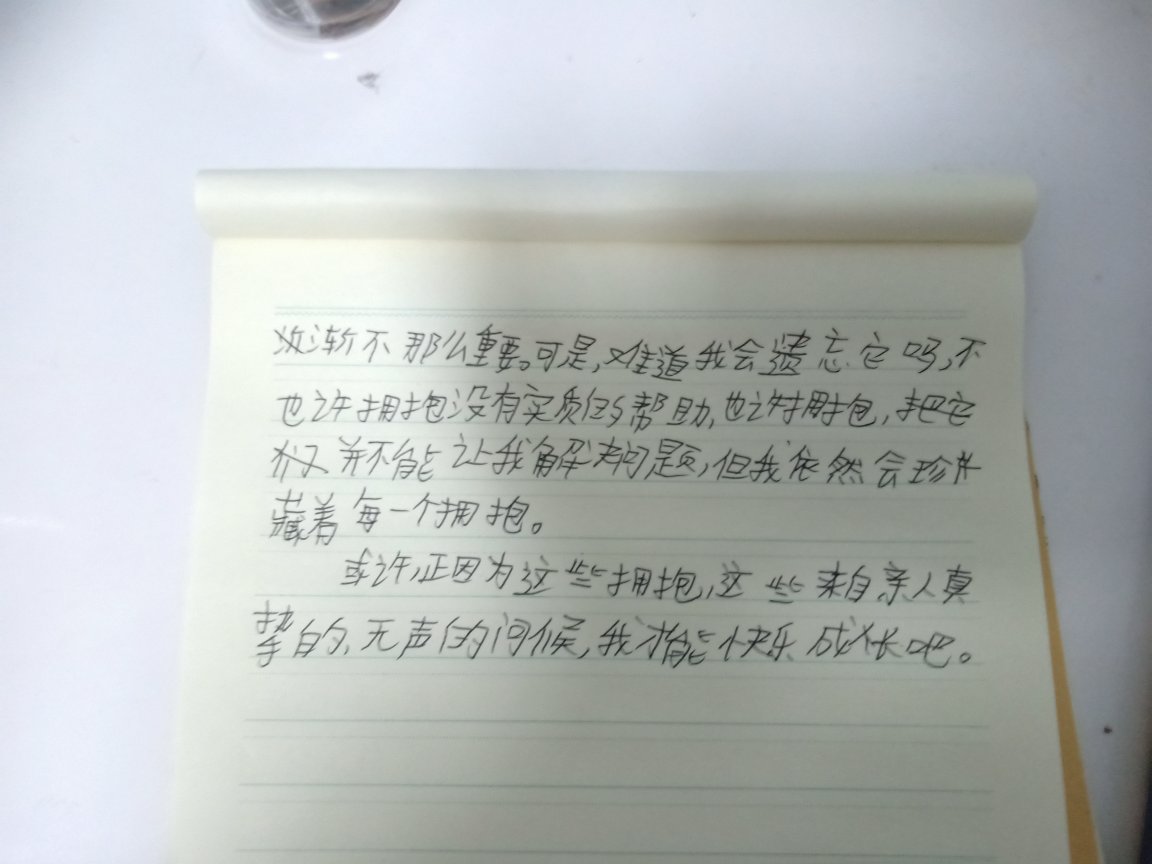 渐渐不那么重要。可是,难道我会遗忘它吗,不
也许拥抱没有实质的帮助,也许拥抱,把它
仅并不能让我解决问题,但我依然会珍
藏着每一个拥抱。
或许,正因为这些拥抱,这些来自亲人真
挚的、无声的问候,我才能快乐成长吧。